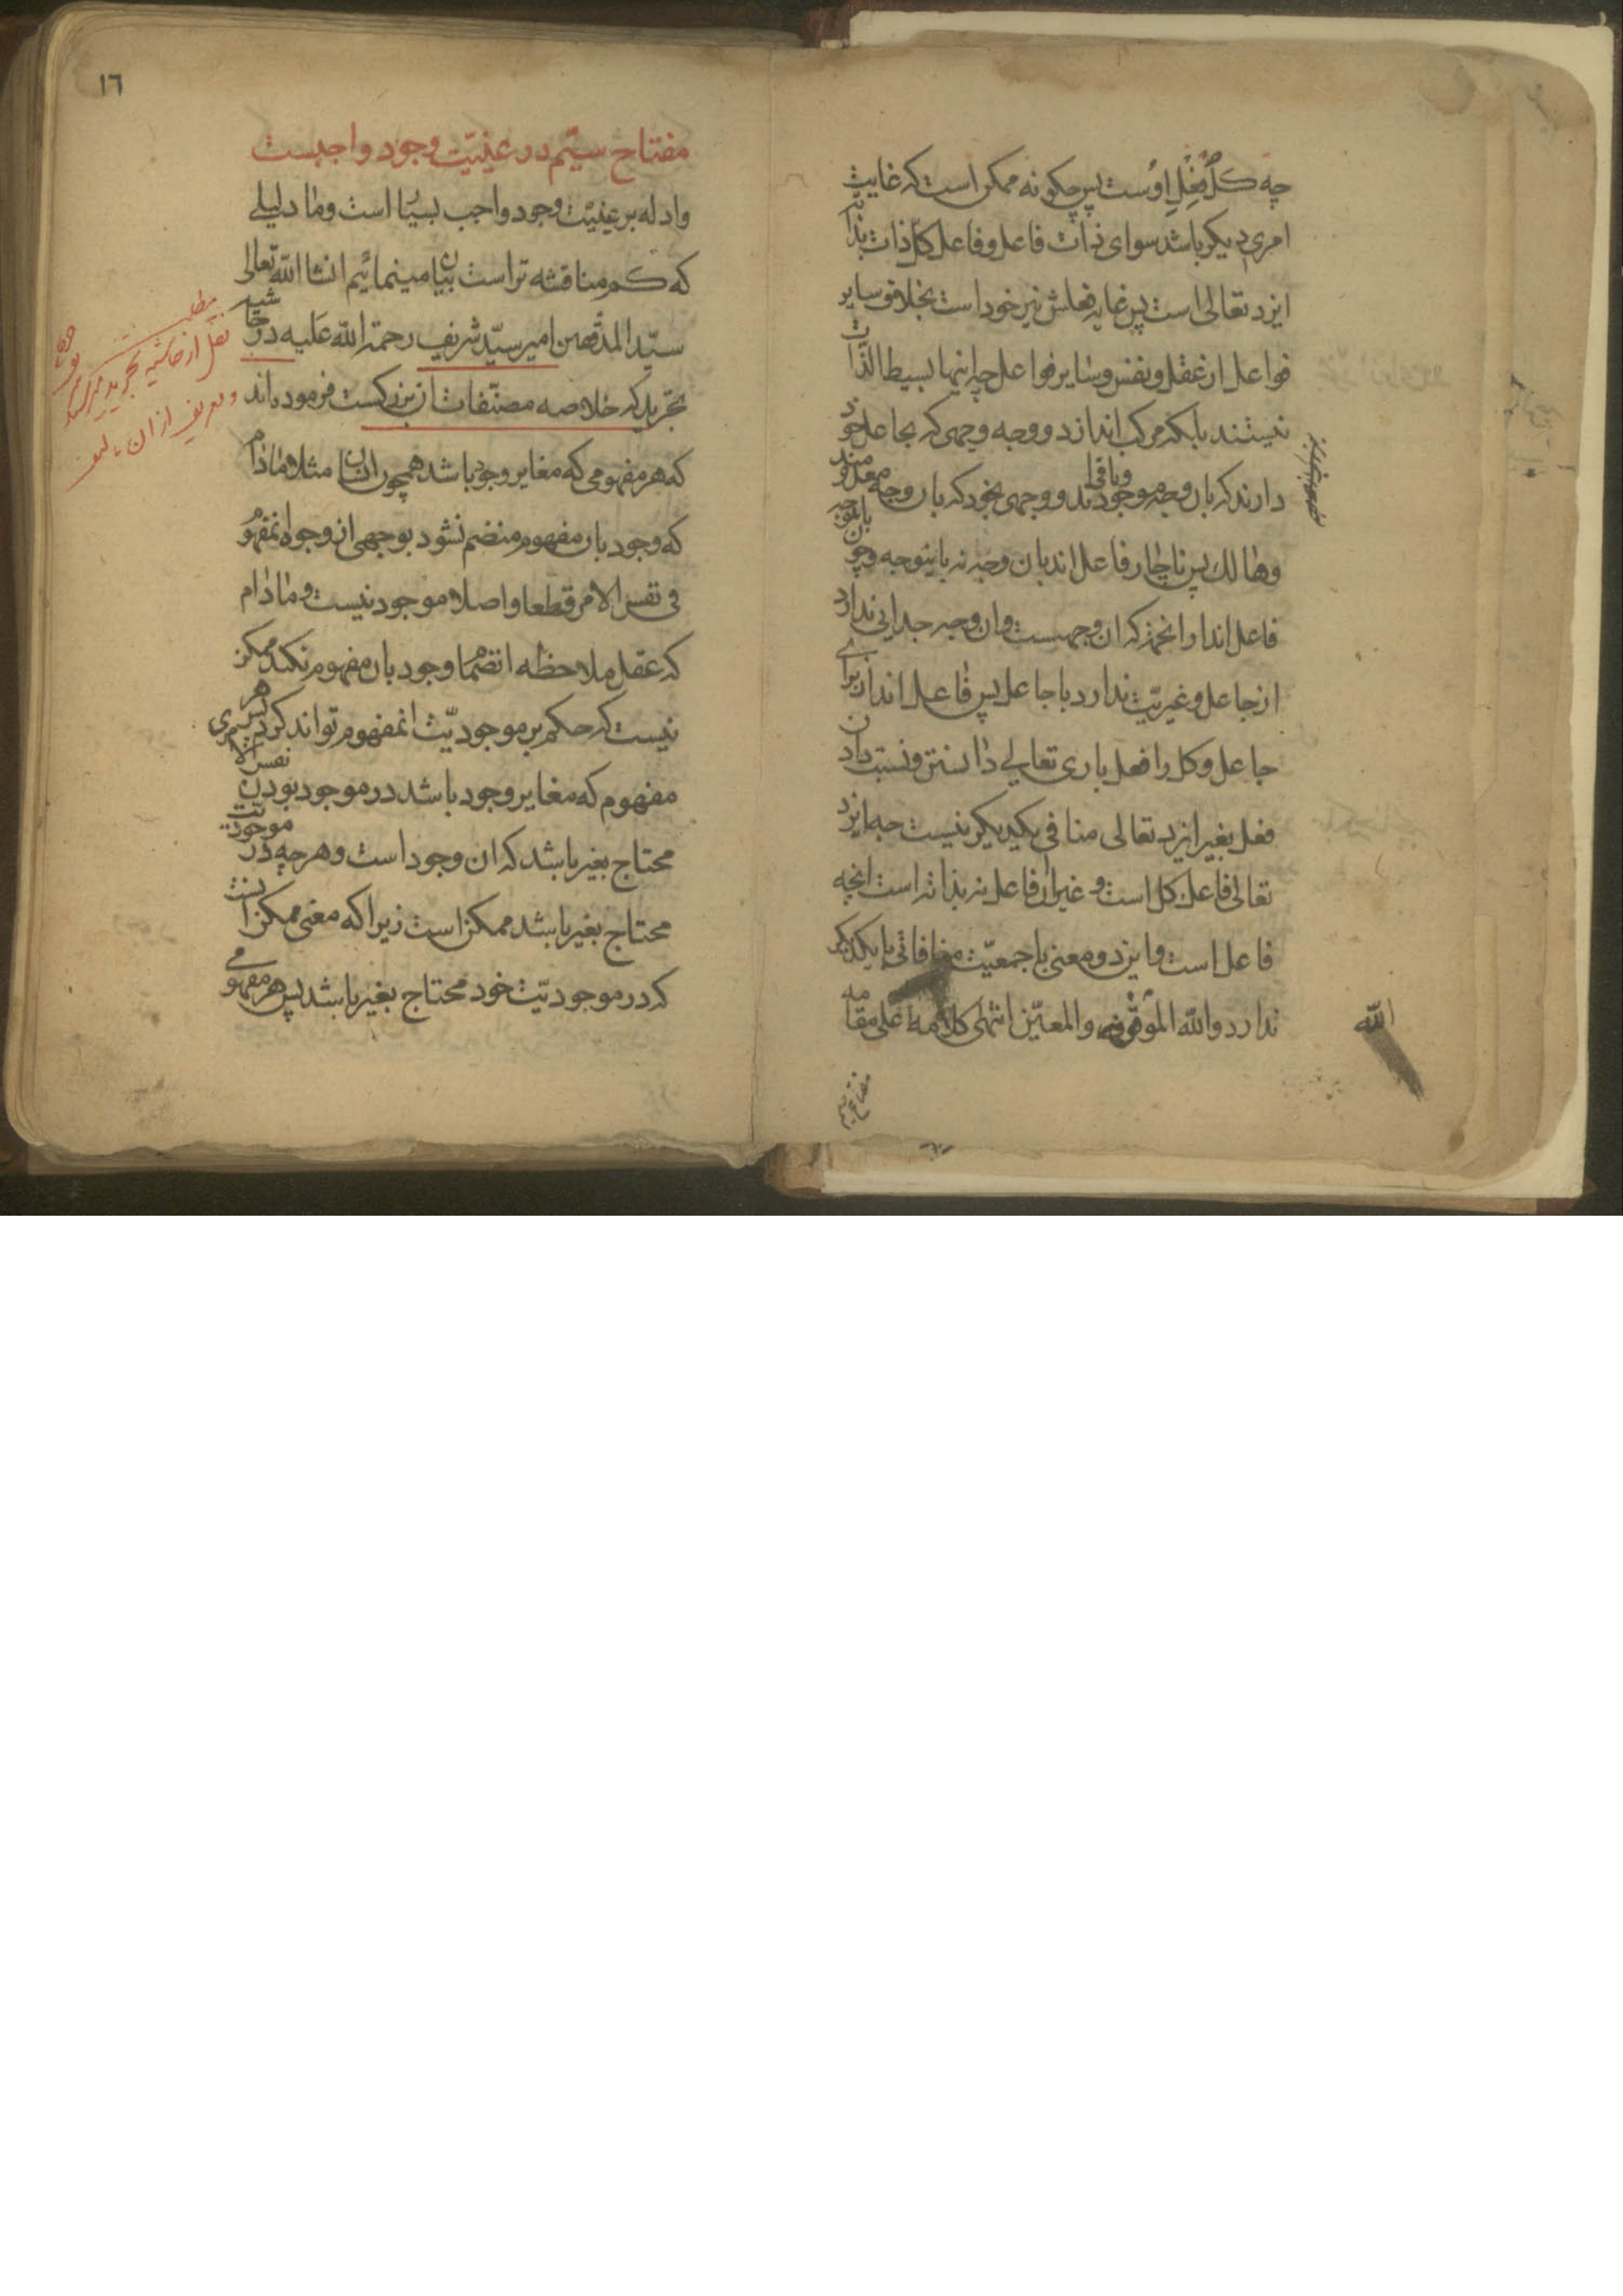 چه كلّ فِعْلِ اوُست پس چكونه ممكن است كه غايتِ
امری ديكر باشد سوای ذات فاعل و فاعل كلّ ذات بذاته
ايزد تعالی است پس غايه فعلش نيز خود است بخلاف ساير
فواعل از عقل و نفس و ساير فواعل چه اينها بسيط الذّات
نيستند بلكه مركب اند از دو وجه وجهی كه بجاعل خود
دارند كه بان وجه موجودند و باقی اند و وجهی بخود كه بان وجه معدومند
وهالك پس ناچار فاعل اند بان وجه نه باينوجه و چون
فاعل اند از انجهة كه ان وجهست و ان وجه جدايی ندارد
از جاعل و غيريّت ندارد با جاعل پس فاعل اند از برای
جاعل و كل را فعل باری تعالی دانستن و نسبت دادن
فعل بغير ايزد تعالی منافی يكديكر نيست چه ايزد
تعالی فاعل كل است و غير ان فاعل نه بذاته است انچه
فاعل است و ايزد و معنی با جمعيّت منافاتی با يكديكر
ندارد والله الموفّق والمعين انتهی كلامه علی مقامه
الله
مفتاح سيّم
١٦
مفتاح سيّم در عينيّت وجود واجبست
وادله بر عينيّت وجود واجب بسيار است و ما دليلی
كه كم مناقشه تر است بيان مينمائيم انشا الله تعالی
سيّد المدققين امير سيّد شريف رحمة الله عليه در حاشيه
تجريد كه خلاصه مصنّفات ان بزركست فرموده اند
كه هر مفهومی كه مغاير وجود باشد همچون انسان مثلا مادام
كه وجود بان مفهوم منضم نشود بوجهی از وجوه انمفهوم
فی نفس الامر قطعا و اصلا موجود نيست و مادام
كه عقل ملاحظه انضمام وجود بان مفهوم نكند ممكن
نيست كه حكم بر موجوديّت انمفهوم تواند كرد پس هر
مفهوم كه مغاير وجود باشد در موجود بودن نفس الامری
محتاج بغير باشد كه ان وجود است و هر چه در موجوديّت
محتاج بغير باشد ممكن است زيرا كه معنی ممكن انست
كه در موجوديّت خود محتاج بغير باشد پس هر مفهومی
مطلب
نقل از حاشيه تجريد